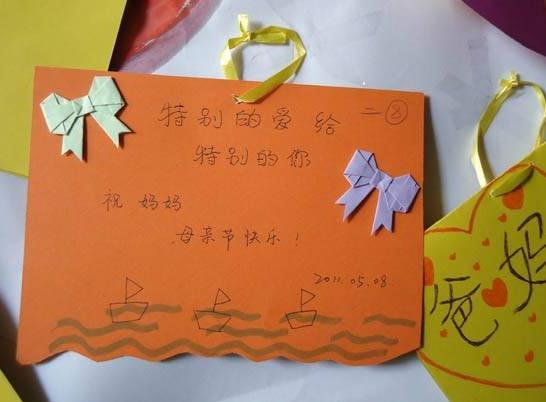 特别的爱给 二⑧
特别的你
祝 妈妈
母亲节快乐！
2011.05.08
爸妈